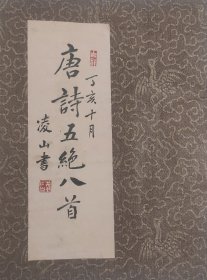 丁亥十月
唐詩五絶八首
凌山書